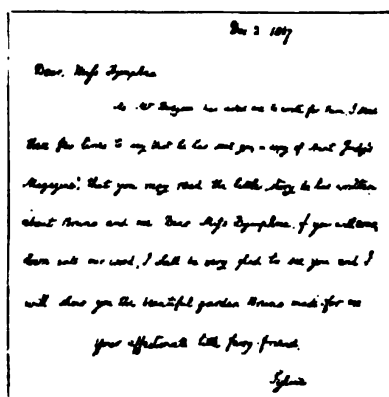 Dec 2 1867
Dear, Miss Dymphna
As Mr Dodgson has asked me to write for him, I send
these few lines to say that he has sent you a copy of Aunt Judy's
Magazine; that you may read the little story he has written
about Bruno and me Dear Miss Dymphna, if you will come
down into our wood, I shall be very glad to see you and I
will show you the beautiful garden Bruno made for me
your affectionate little fairy-friend.
Sylvie